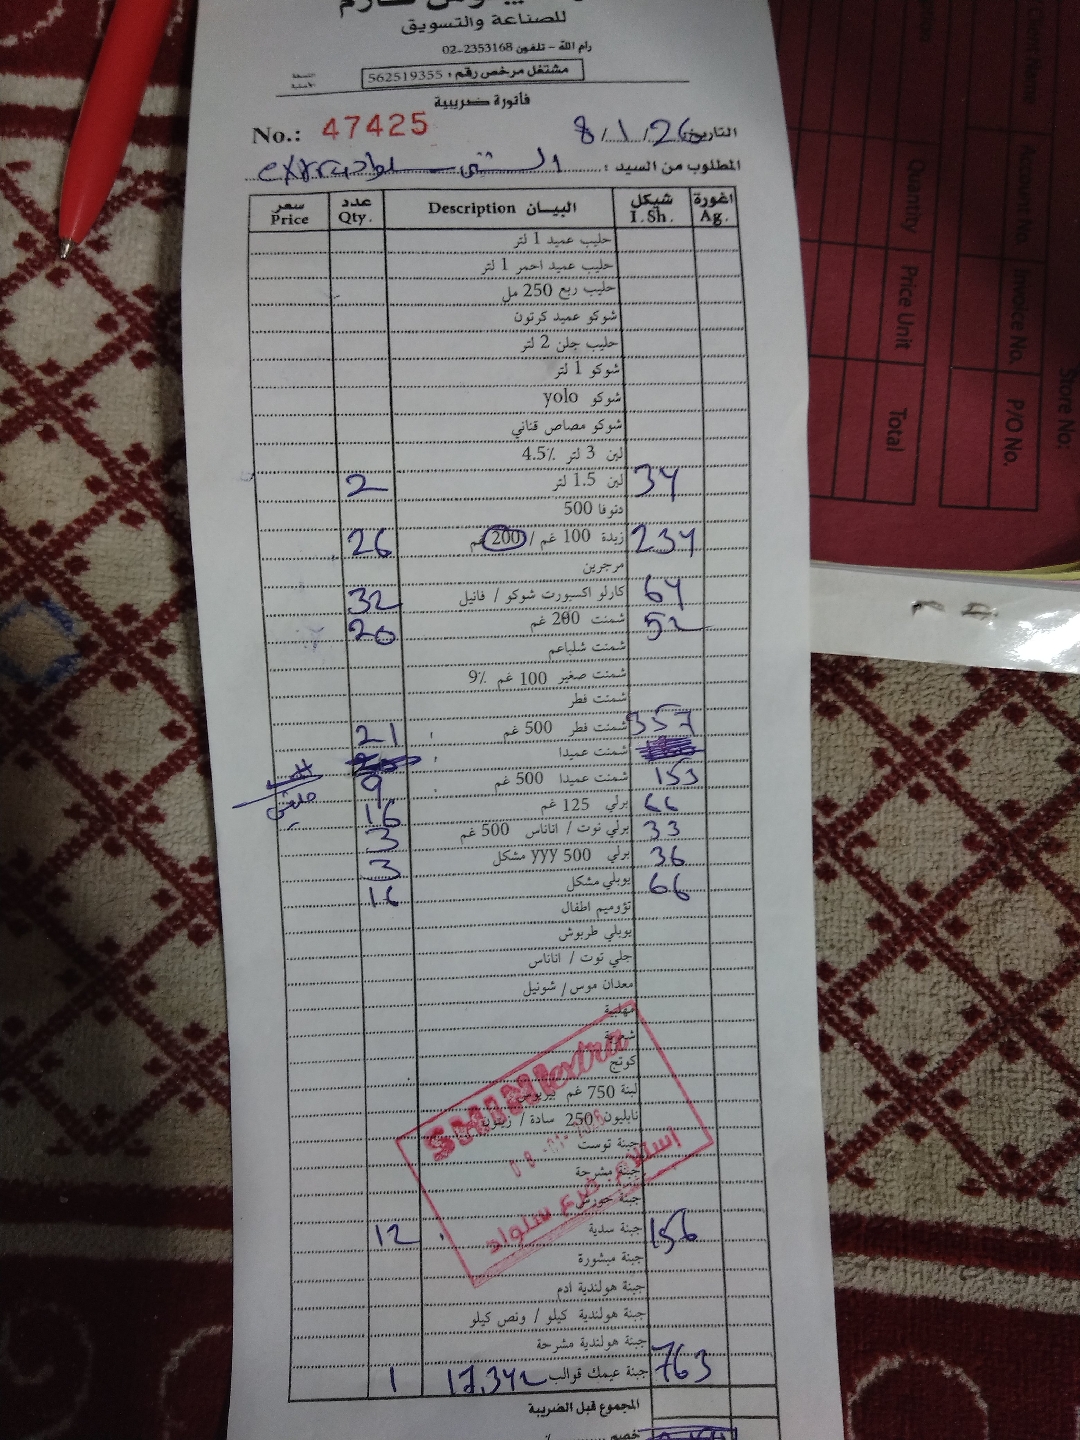 للصناعة والتسويق
رام الله - تلفون 02-2353168
مشتغل مرخص رقم : 562519355
فاتورة ضريبية
No.: 47425
التاريخ: 8/1/26
المطلوب من السيد : الشني سلواد extra
اغورة Ag. شيكل I.Sh. البيـــان Description عدد Qty. سعر Price
حليب عميد 1 لتر
حليب عميد احمر 1 لتر
حليب ربع 250 مل
شوكو عميد كرتون
حليب جلن 2 لتر
شوكو 1 لتر
شوكو yolo
شوكو مصاص قناني
لبن 3 لتر 4.5٪
34 لبن 1.5 لتر 2
دنوفا 500
234 زبدة 100 غم / 200 غم 26
مرجرين
64 كارلو اكسبورت شوكو / فانيل 32
52 شمنت 200 غم 20
شمنت شلباعم
شمنت صغير 100 غم 9٪
شمنت فطر
357 شمنت فطر 500 غم 21
شمنت عميدا
153 شمنت عميدا 500 غم 9
66 برلي 125 غم 16
33 برلي توت / اناناس 500 غم 3
36 برلي yyy 500 مشكل 3
66 يوبلي مشكل 16
تؤوميم اطفال
يوبلي طربوش
جلي توت / اناناس
معدان موس / شونيل
مهلبية
كوتج
لبنة 750 غم
نابليون 250 سادة /
جبنة توست
جبنة مشرحة
156 جبنة سدية 12
جبنة مبشورة
جبنة هولندية ادم
جبنة هولندية كيلو / ونص كيلو
جبنة هولندية مشرحة
763 جبنة عيمك قوالب 17,342 1
المجموع قبل الضريبة
خصم
SHINI extra
استلام فرع سلواد
Store No:
Account No.
Invoice No.
P/O No.
Quantity
Price Unit
Total